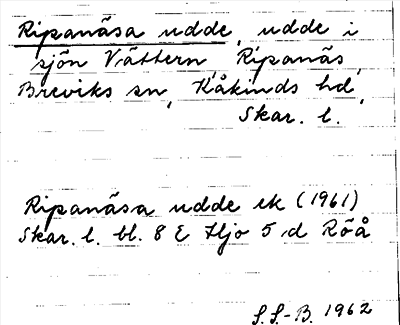 Ripanäsa udde, udde i
sjön Vättern, Ripanäs,
Breviks sn, Kåkinds hd,
Skar. l.
Ripanäsa udde ek (1961)
Skar. l. bl. 8 E Hjo 5 d Röå
S.S.-B. 1962